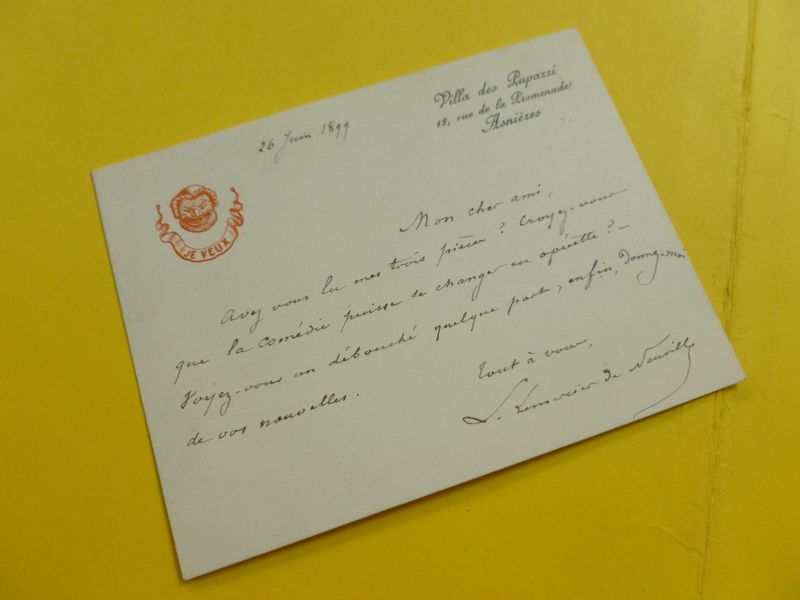 Villa des Pupazzi
12, rue de la Promenade
Asnières
26 Juin 1899
JE VEUX
Mon cher ami,
Avez vous lu mes trois pièces ? Croyez-vous
que la comédie puisse se changer en opérette ? –
Voyez-vous un débouché quelque part, enfin, donnez-moi
de vos nouvelles.
Tout à vous,
L. Lemercier de Neuville